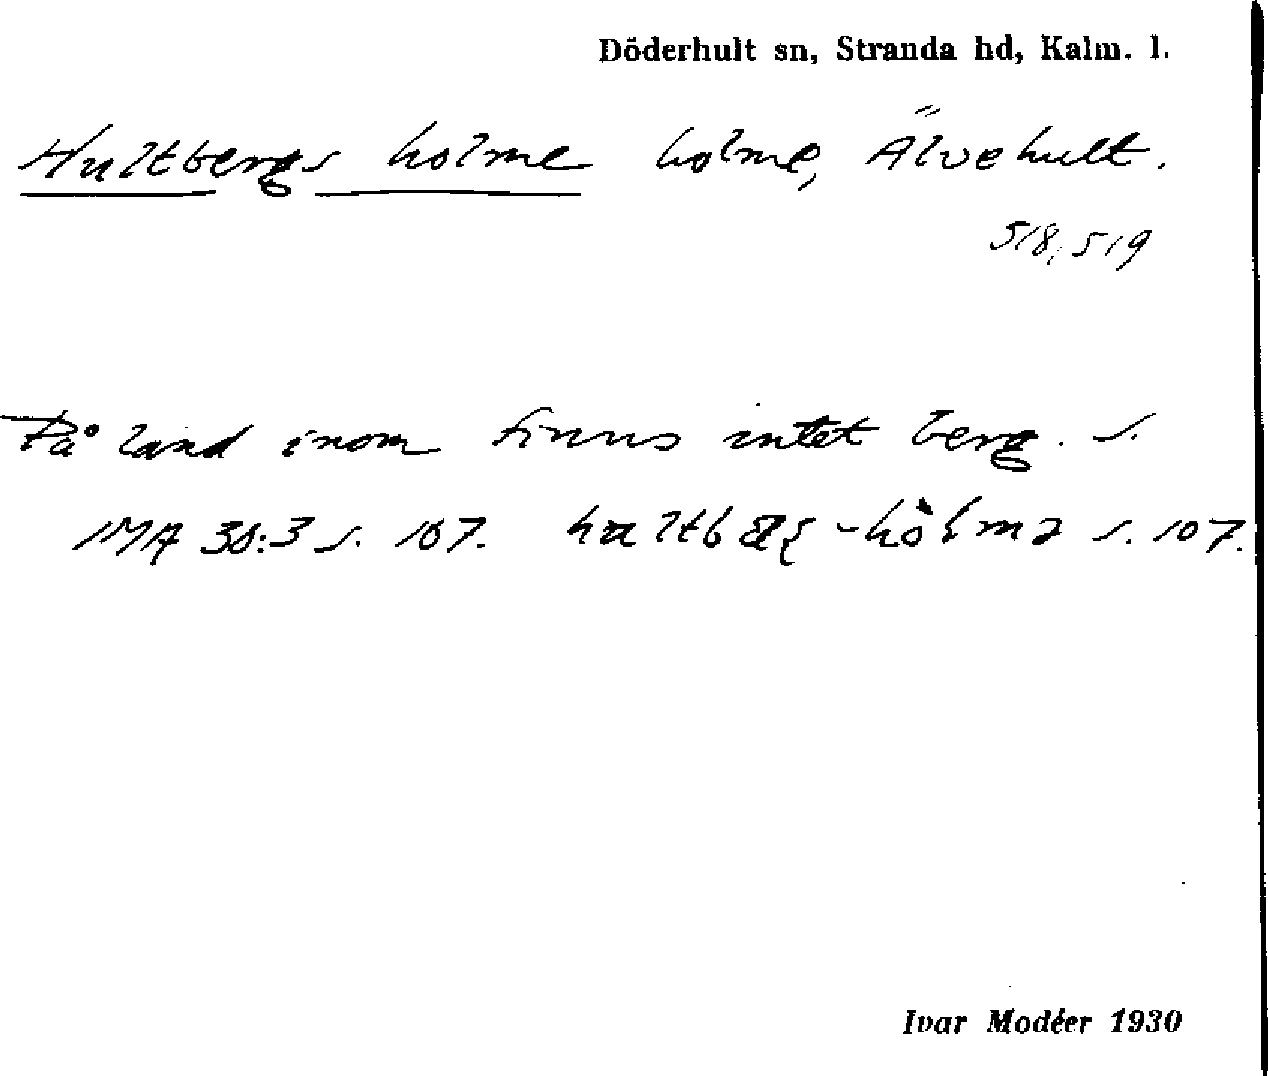 Döderhult sn, Stranda hd, Kalm. l.
Hultbergs holme holme, Älvehult.
518, 519
På land inom finns intet berg. s.
IMA 30:3 s. 107. s. 107.
Ivar Modéer 1930